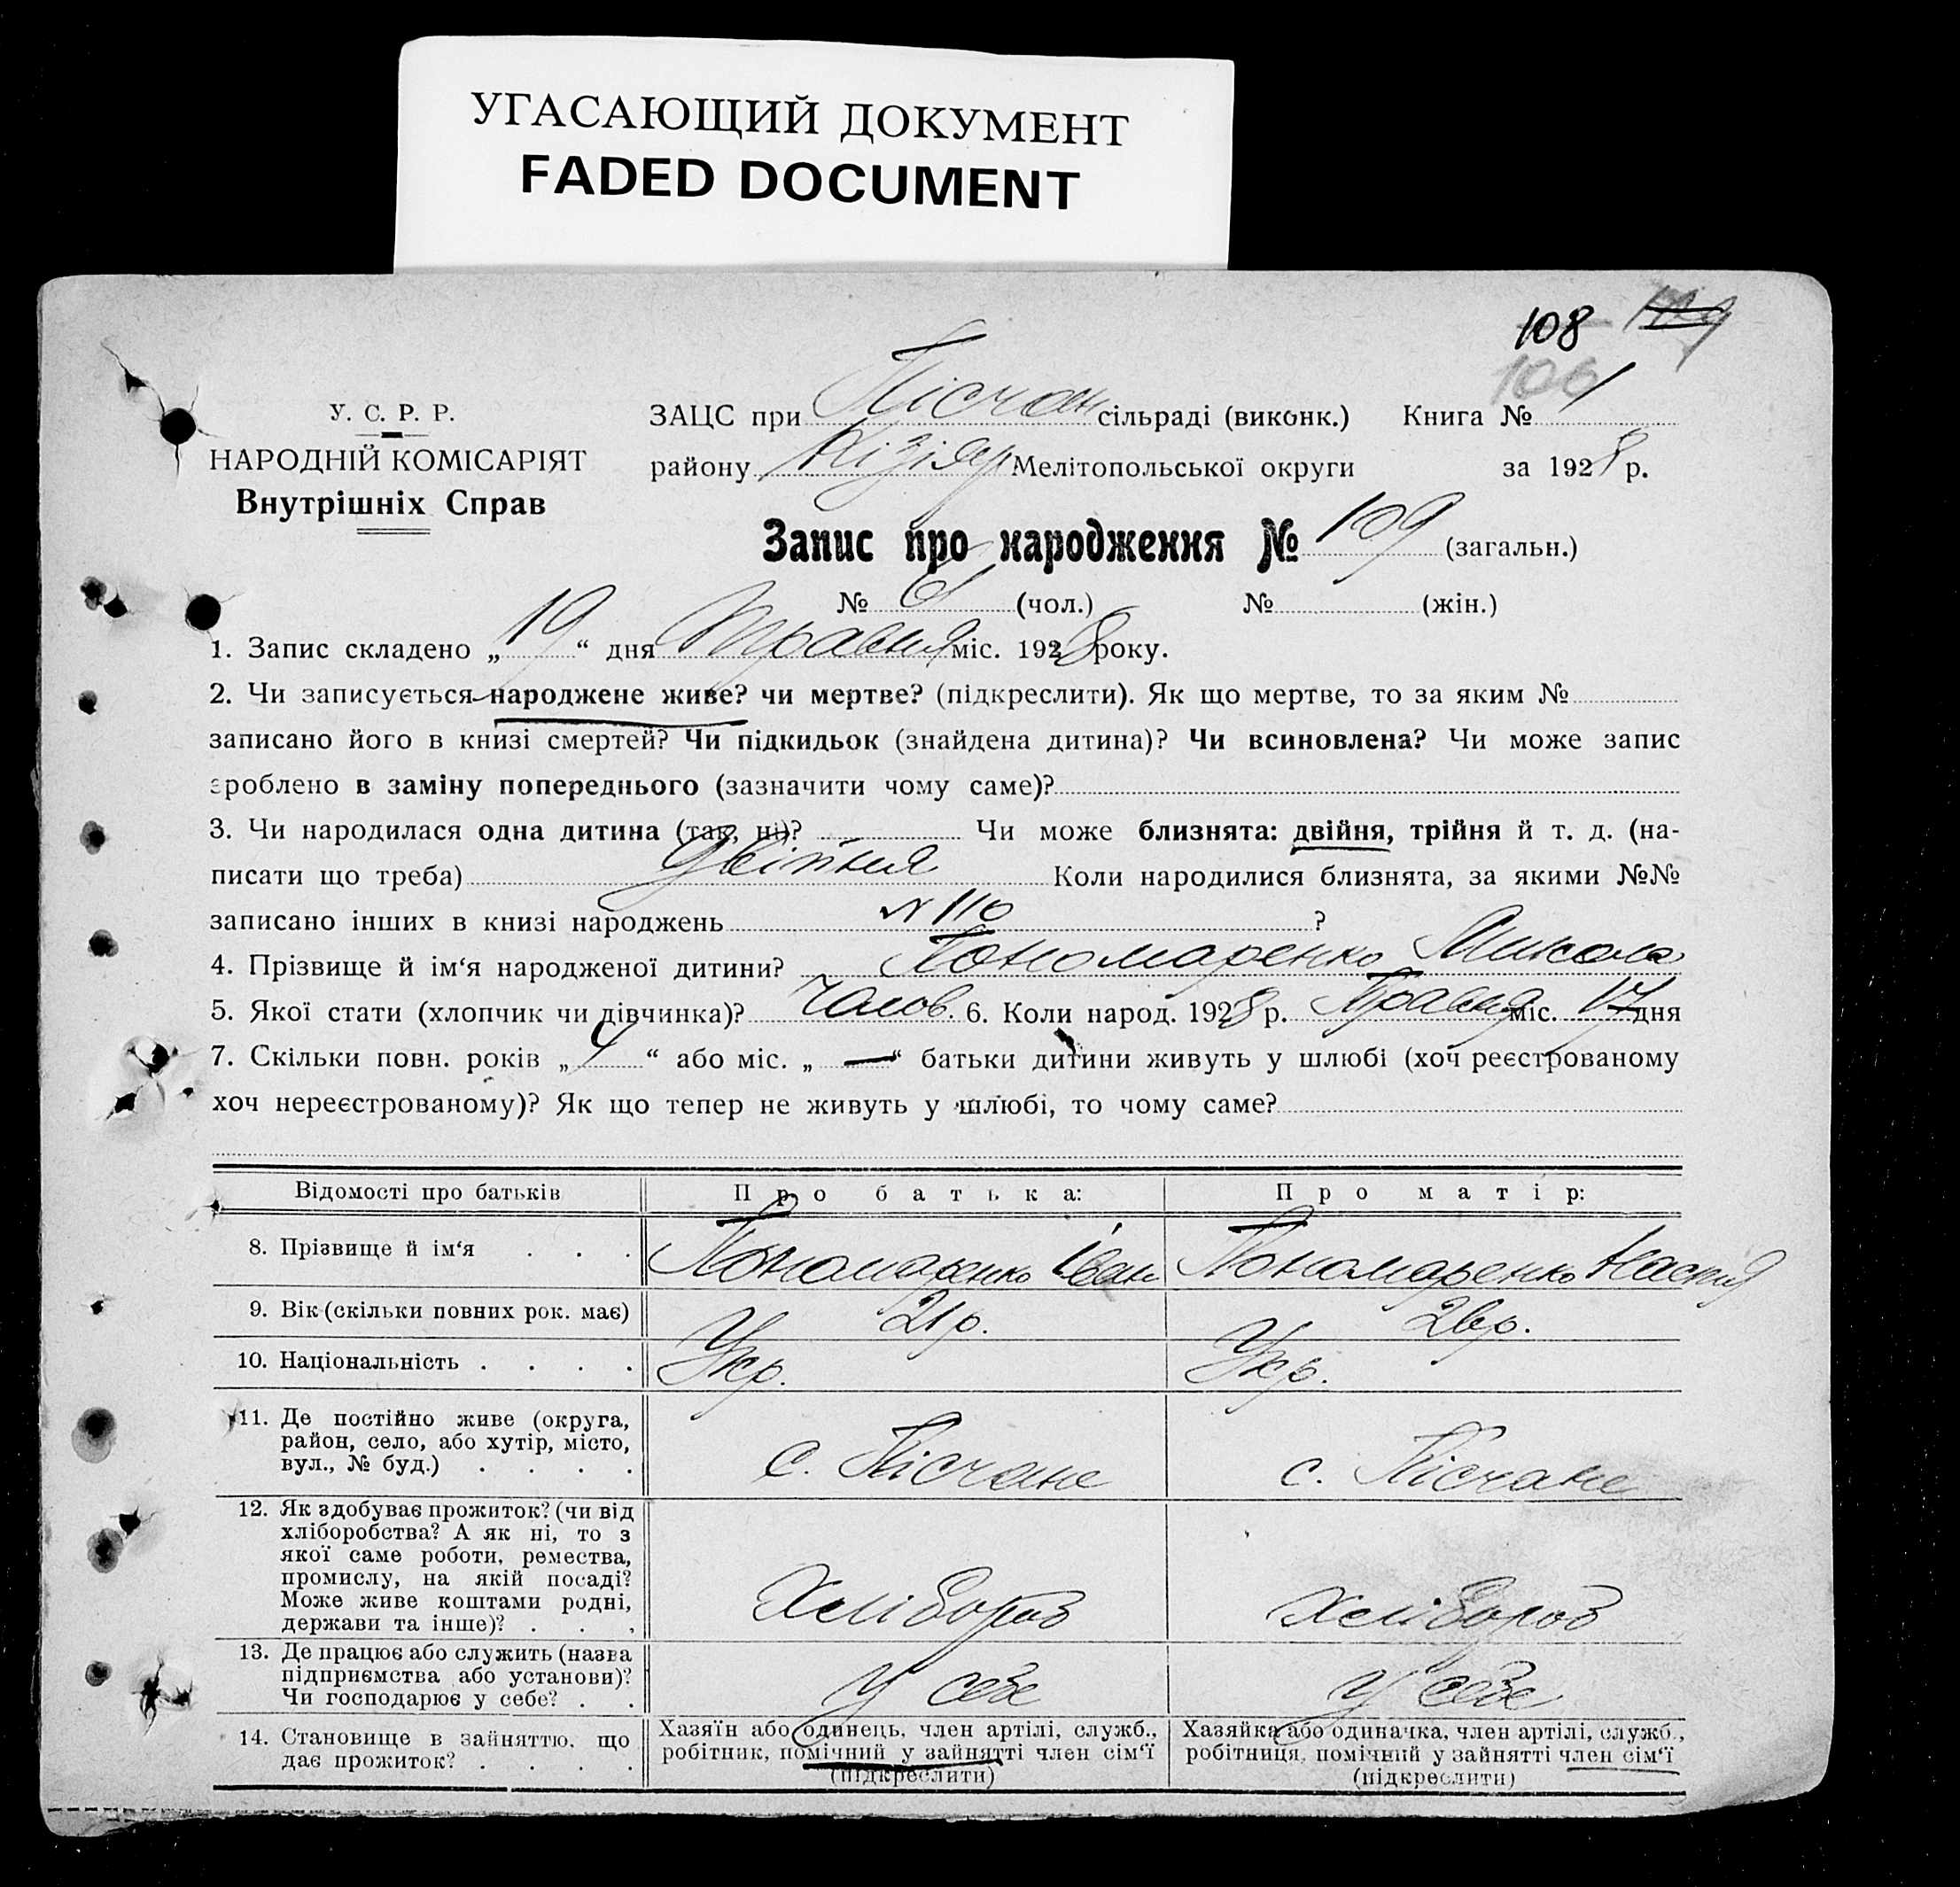 УГАСАЮЩИЙ ДОКУМЕНТ
FADED DOCUMENT
108 109
106
У. С. Р. Р.
НАРОДНІЙ КОМІСАРІЯТ
Внутрішніх Справ
ЗАЦС при Пісчан сільраді (виконк.) Книга № 1
району Нізіяр Мелітопольської округи за 1928 р.
Запис про народження № 109 (загальн.)
№ (чол.) № (жін.)
1. Запис складено „19“ дня Травня міс. 1928 року.
2. Чи записується народжене живе? чи мертве? (підкреслити). Як що мертве, то за яким №
записано його в книзі смертей? Чи підкидьок (знайдена дитина)? Чи всиновлена? Чи може запис
зроблено в заміну попереднього (зазначити чому саме)?
3. Чи народилася одна дитина (так, ні)? Чи може близнята: двійня, трійня й т. д. (на-
писати що треба) двійня Коли народилися близнята, за якими №№
записано інших в книзі народжень N 110 ?
4. Прізвище й ім‘я народженої дитини? Пономаренко Микола
5. Якої стати (хлопчик чи дівчинка)? Чолов. 6. Коли народ. 1928 р. Травня міс. 17 дня
7. Скільки повн. років „4“ або міс. „—“ батьки дитини живуть у шлюбі (хоч реєстрованому
хоч нереєстрованому)? Як що тепер не живуть у шлюбі, то чому саме?
Відомості про батьків Про батька: Про матір:
8. Прізвище й ім‘я . . . Пономаренко Іван Пономаренко Настя
9. Вік (скільки повних рок. має) 21 р. 26 р.
10. Національність . . . . Укр. Укр.
11. Де постійно живе (округа,
район, село, або хутір, місто,
вул., № буд.) . . . . с. Пісчане с. Пісчане
12. Як здобуває прожиток? (чи від
хліборобства? А як ні, то з
якої саме роботи, ремества,
промислу, на якій посаді?
Може живе коштами родні,
держави та інше)? . . . Хлібороб Хлібороб
13. Де працює або служить (назва
підприємства або установи)?
Чи господарює у себе? . . У себе У себе
14. Становище в зайняттю, що
дає прожиток? . . . .
Хазяїн або одинець, член артілі, служб.,
робітник, помічний у зайнятті член сім‘ї
(підкреслити)
Хазяйка або одиначка, член артілі, служб.,
робітниця, помічний у зайнятті член сім‘ї
(підкреслити)